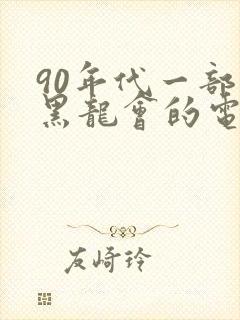 90年代一部
黑龍會的電
友崎玲